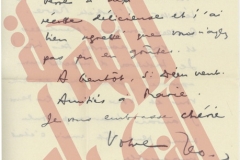 délicieuse et j'ai
bien regretté que vous n'ayez
pas pu en goûter.
A bientôt, si Dieu veut.
Amitiés à Marie.
Je vous embrasse chérie
Votre